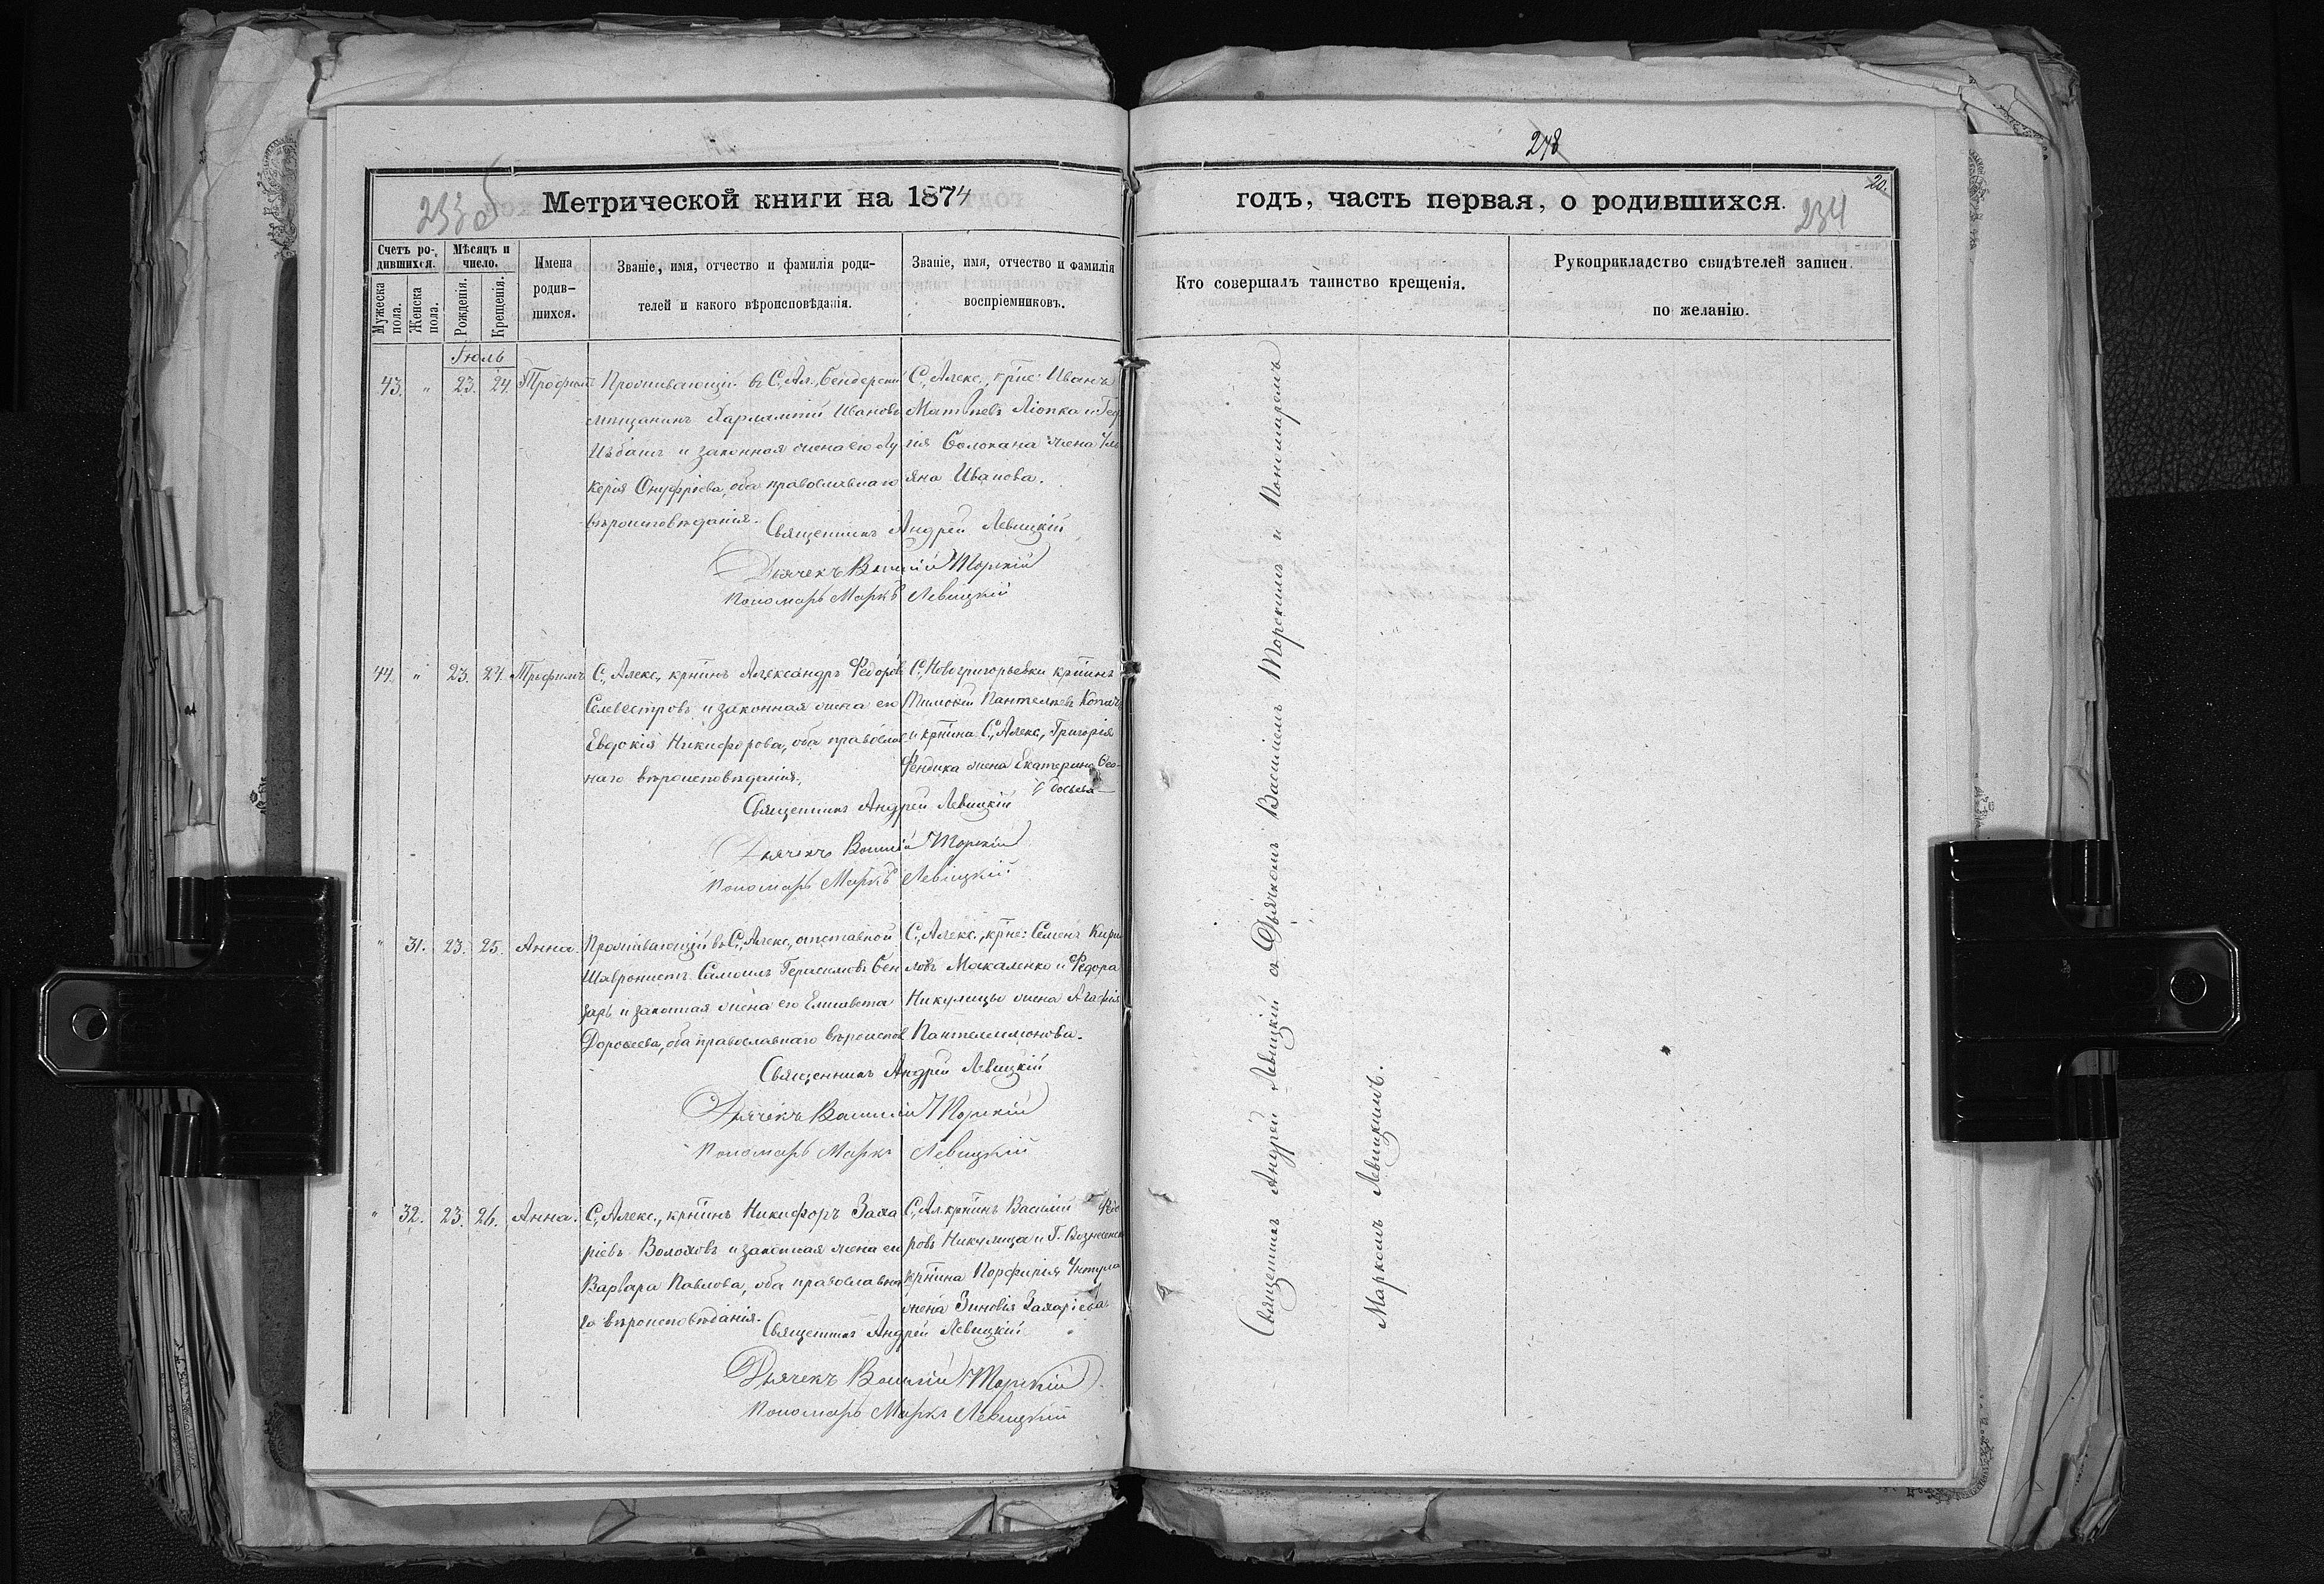 278
20.
234
Метрической книги на 1874 годъ, часть первая, о родившихся.
Счетъ родившихся.
Мужеска пола.
Женска пола.
Мѣсяцъ и число.
Рожденія.
Крещенія.
Имена родив-
шихся.
Званіе, имя, отчество и фамилія роди-
телей и какого вѣроисповѣданія.
Званіе, имя, отчество и фамилія
воспріемниковъ.
Кто совершалъ таинство крещенія.
Рукоприкладство свидѣтелей записи
по желанію.
Іюль
43. " 23. 24. Трофимъ
Проживающій въ С, Ал, Бендерскій
мѣщанинъ Харлампій Ивановъ
и законная жена его Лу
керія Онуфріева, оба православнаго
вѣроисповѣданія.
С, Алекс., крне: Иванъ
Матѳѣевъ Ліопка и Геор
гія Болокана жена Уль
яна Иванова.
Священникъ Андрей Левицкій
Дьячекъ Василій Торскій
Пономарь Маркъ Левицкій
44. " 23. 24. Трофимъ
С, Алекс., крнинъ Александръ Ѳедоровъ
Селевестровъ и законная жена его
Евдокія Никифорова, оба православ
наго вѣроисповѣданія.
С, Новогригорьевки крнинъ
Тимоѳей Пантелѣевъ
и крнина С, Алекс., Григорія
Фендика жена Екатерина Ѳео-
досьева
Священникъ Андрей Левицкій
Дьячекъ Василій Торскій
Пономарь Маркъ Левицкій
" 31. 23. 25. Анна.
Проживающій въ С, Алекс., отставной
Самоилъ Герасимовъ Бен
дарь и законная жена его Елисавета
Дороѳеева, оба православнаго вѣроиспов
С, Алекс., крне: Семенъ Кири
ловъ Макаленко и Ѳедора
Никулицы жена Агафія
Пантелеимонова.
Священникъ Андрей Левицкій
Дьячекъ Василій Торскій
Пономарь Маркъ Левицкій
" 32. 23. 26. Анна.
С, Алекс., крнинъ Никифоръ Заха
ріевъ Волоховъ и законная жена его
Варвара Павлова, оба православна
го вѣроисповѣданія.
С, Ал. крнинъ Василій Ѳедо
ровъ Никулица и Г. Вознесенска
крнина Порфирія
жена Зиновія Захаріева
Священникъ Андрей Левицкій
Дьячекъ Василій Торскій
Пономарь Маркъ Левицкій
Священникъ Андрей Левицкій съ Дьячкомъ Василіемъ Торскимъ и Пономаремъ
Маркомъ Левицкимъ.